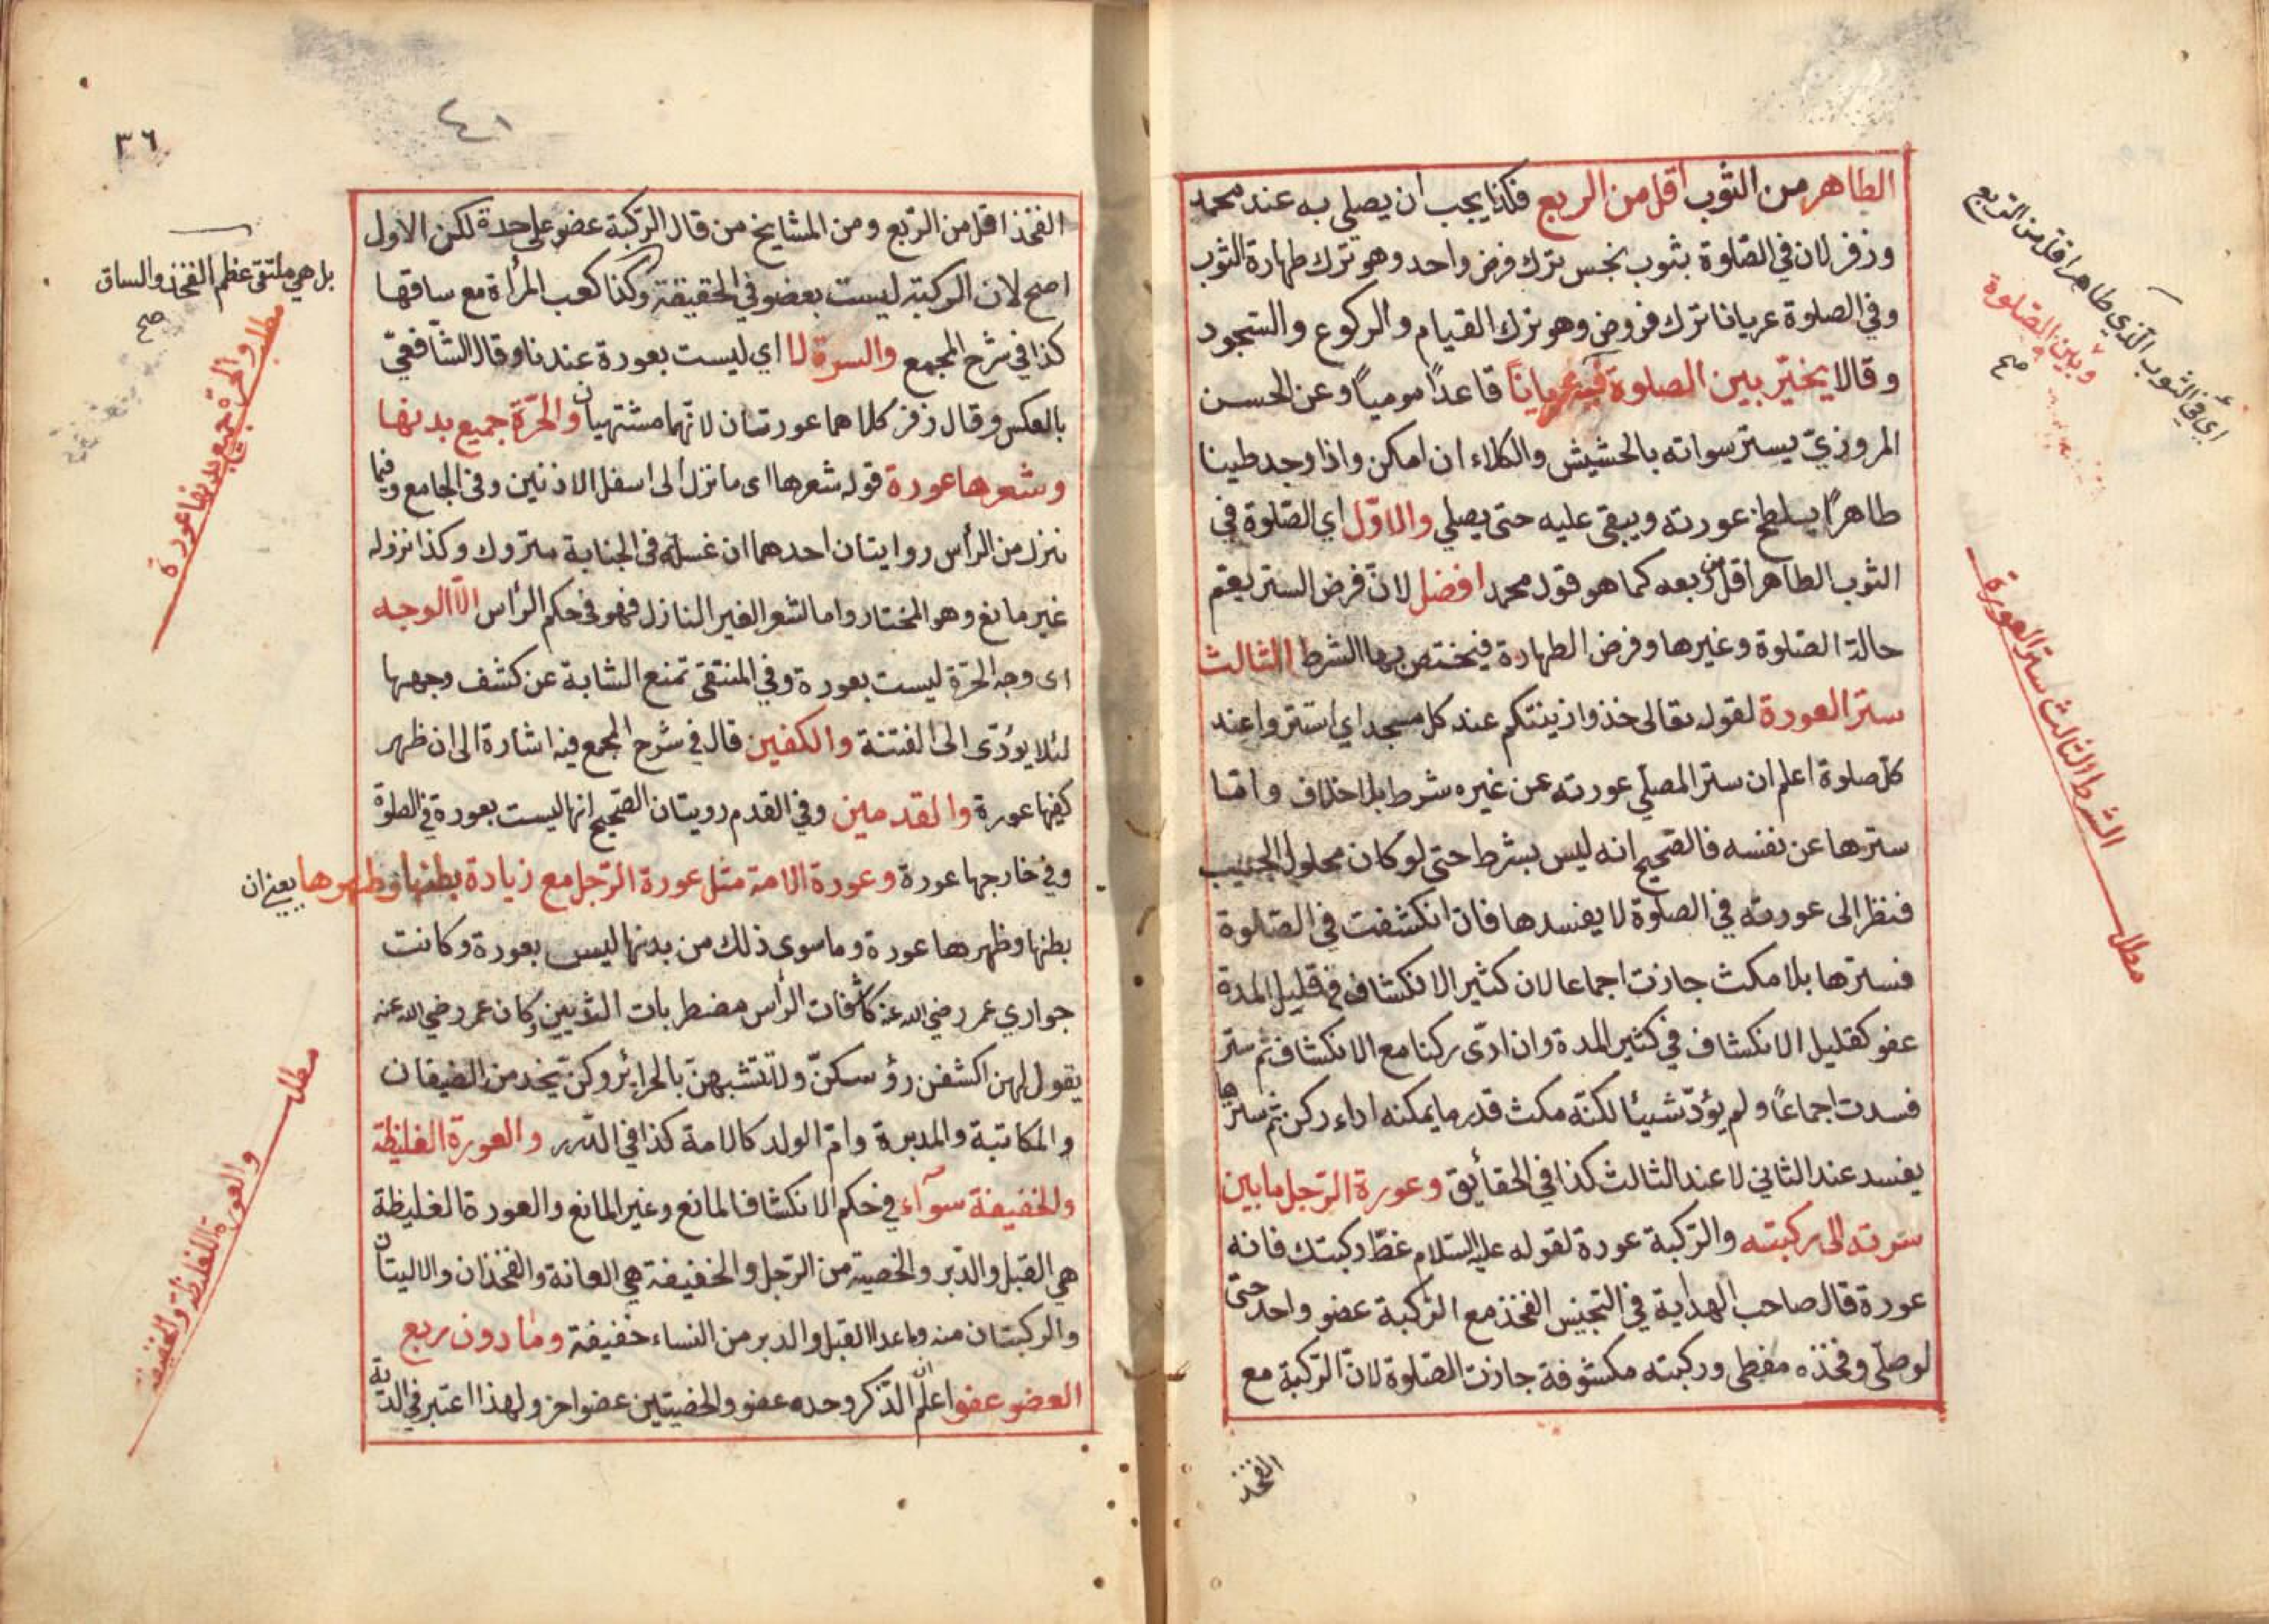 الطاهر من الثوب اقل من الربع فكذا يجب ان يصلى به عند محمد
وزفر لان في الصّلوة بثوب نجس ترك فرض واحد وهو ترك طهارة الثوب
وفي الصلوة عريانا ترك فروض وهو ترك القيام والركوع والسّجود
وقالا يخيّر بين الصلوة فيه عرياناً قاعداً مومياً وعن الحسن
المروزيّ يستر سواته بالحشيش والكلاء ان امكن واذا وجد طينا
طاهراً يلطخ عورته ويبقى عليه حتى يصلي والاوّل اي الصّلوة في
الثوب الطاهر اقل من ربعه كما هو قول محمد افضل لانّ فرض الستر يعمّ
حالة الصّلوة وغيرها وفرض الطهارة فيختص بها الشرط الثالث
ستر العورة لقوله تعالى خذوا زينتكم عند كل مسجد اي استتروا عند
كلّ صلوة اعلم ان ستر المصلّي عورته عن غيره شرط بلا خلاف وامّا
سترها عن نفسه فالصّحيح انه ليس بشرط حتى لو كان محلول الجيب
فنظر الى عورته في الصلوة لا يفسدها فان انكشفت في الصّلوة
فسترها بلا مكث جازت اجماعا لان كثير الانكشاف في قليل المدة
عفو كقليل الانكشاف في كثير المدة وان ادّى ركنا مع الانكشاف ثم ستر
فسدت اجماعاً ولم يؤدّ شيئا لكنّه مكث قدر ما يمكنه اداء ركن ثم سترها
يفسد عند الثاني لا عند الثالث كذا في الحقائق وعورة الرّجل ما بين
سرته الى ركبته والرّكبة عورة لقوله عليه السّلام غطّ ركبتك فانه
عورة قال صاحب الهداية في التجنيس الفخذ مع الرّكبة عضو واحد حتى
لو صلّى وفخذه مغطى وركبته مكشوفة جازت الصّلوة لانّ الرّكبة مع
الفخذ
اي في الثوب الّذي طاهر اقل من الرّبع
وبين الصّلوة
صح
الشرط الثالث ستر العورة
مطل
٣٦
٤١
الفخذ اقل من الرّبع ومن المشايخ من قال الرّكبة عضو على حدة لكن الاول
اصح لان الركبة ليست بعضو في الحقيقة وكذا كعب المرأة مع ساقها
كذا في شرح المجمع والسرة لا اي ليست بعورة عندنا وقال الشّافعيّ
بالعكس وقال زفر كلاهما عورتان لانّهما مشتهيان والحرّة جميع بدنها
وشعرها عورة قوله شعرها اى ما نزل الى اسفل الاذنين وفى الجامع وفيما
نزل من الرأس روايتان احدهما ان غسله فى الجنابة متروك وكذا نزوله
غير مانع وهو المختار واما الشعر الغير النازل فهو فى حكم الرّأس الّا الوجه
اى وجه الحرّة ليست بعورة وفي المنتقى تمنع الشابة عن كشف وجهها
لئلا يؤدّى الى الفتنة والكفين قال في شرح المجمع فيه اشارة الى ان ظهر
كفها عورة والقدمين وفي القدم رويتان الصّحيح انها ليست بعورة في الصلوة
وفي خارجها عورة وعورة الامة مثل عورة الرّجل مع زيادة بطنها وظهرها يعني ان
بطنها وظهرها عورة وما سوى ذلك من بدنها ليس بعورة وكانت
جواري عمر رضي الله عنه كاشفات الرّأس مضطربات الثديين وكان عمر رضي الله عنه
يقول لهن اكشفن رؤسكنّ ولا تتشبهن بالحرائر وكنّ يخدمن الضيفان
والمكاتبة والمدبرة وامّ الولد كالامة كذا في الدّرر والعورة الغليظة
والخفيفة سوآء في حكم الانكشاف المانع وغير المانع والعورة الغليظة
هي القبل والدّبر والخصية من الرّجل والخفيفة هي العانة والفخذان والاليتان
والركبتان منه وما عدا القبل والدبر من النساء خفيفة وما دون ربع
العضو عفو اعلم انّ الذّكر وحده عضو والخصيتين عضو اخر ولهذا اعتبر في الدّية
بل هي ملتقى عظم الفخذ والساق
صح
مطل والحرّة جميع بدنها عورة
مطل
والعورة الغليظة والخفيفة